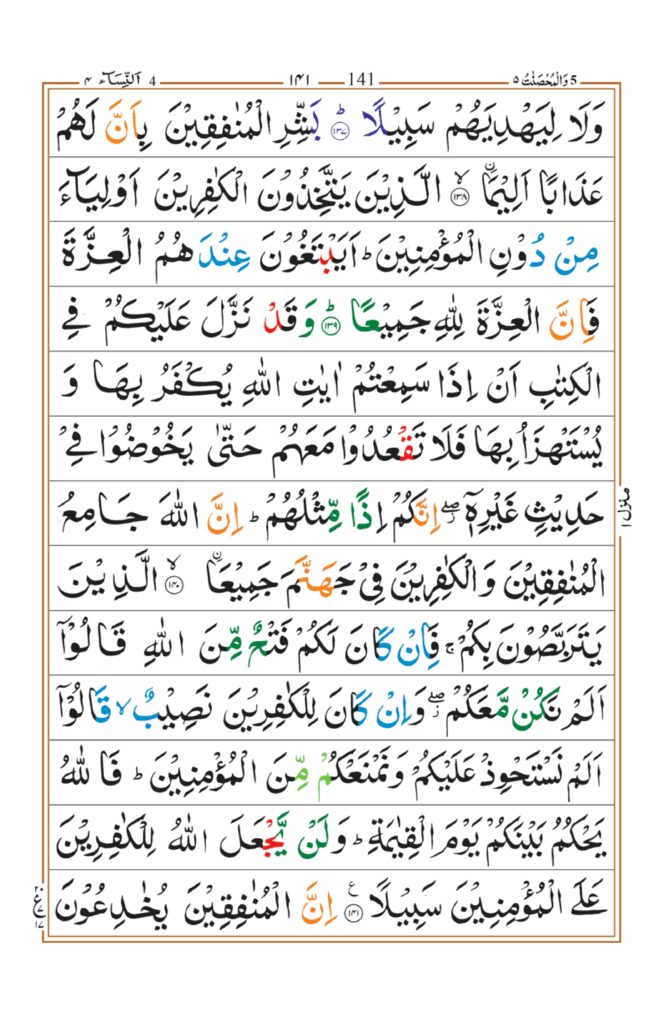 وَالْمُحْصَنٰتُ ۵ 5 141 ۱۴۱ 4 اَلنِّسَآء ۴
وَلَا لِيَهْدِيَهُمْ سَبِيْلًا ؕ ۱۳۷ بَشِّرِ الْمُنٰفِقِيْنَ بِاَنَّ لَهُمْ
عَذَابًا اَلِيْمَاۨ ۙ ۱۳۸ الَّذِيْنَ يَتَّخِذُوْنَ الْكٰفِرِيْنَ اَوْلِيَآءَ
مِنْ دُوْنِ الْمُؤْمِنِيْنَ ؕ اَيَبْتَغُوْنَ عِنْدَهُمُ الْعِزَّةَ
فَاِنَّ الْعِزَّةَ لِلّٰهِ جَمِيْعًا ؕ ۱۳۹ وَقَدْ نَزَّلَ عَلَيْكُمْ فِي
الْكِتٰبِ اَنْ اِذَا سَمِعْتُمْ اٰيٰتِ اللّٰهِ يُكْفَرُ بِهَا وَ
يُسْتَهْزَاُ بِهَا فَلَا تَقْعُدُوْا مَعَهُمْ حَتّٰى يَخُوْضُوْا فِيْ
حَدِيْثٍ غَيْرِهٖٓ ۖ اِنَّكُمْ اِذًا مِّثْلُهُمْ ؕ اِنَّ اللّٰهَ جَامِعُ
الْمُنٰفِقِيْنَ وَالْكٰفِرِيْنَ فِيْ جَهَنَّمَ جَمِيْعَاۨ ۙ ۱۴۰ الَّذِيْنَ
يَتَرَبَّصُوْنَ بِكُمْ ۚ فَاِنْ كَانَ لَكُمْ فَتْحٌ مِّنَ اللّٰهِ قَالُوْۤا
اَلَمْ نَكُنْ مَّعَكُمْ ۖ وَاِنْ كَانَ لِلْكٰفِرِيْنَ نَصِيْبٌ ۙ قَالُوْۤا
اَلَمْ نَسْتَحْوِذْ عَلَيْكُمْ وَنَمْنَعْكُمْ مِّنَ الْمُؤْمِنِيْنَ ؕ فَاللّٰهُ
يَحْكُمُ بَيْنَكُمْ يَوْمَ الْقِيٰمَةِ ؕ وَلَنْ يَّجْعَلَ اللّٰهُ لِلْكٰفِرِيْنَ
عَلَى الْمُؤْمِنِيْنَ سَبِيْلًا ۱۴۱ ع اِنَّ الْمُنٰفِقِيْنَ يُخٰدِعُوْنَ
منزل ۱